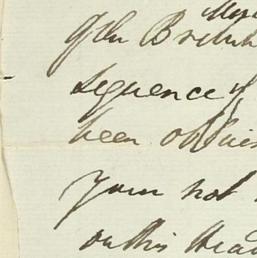 of the British
sequence of
been
your not
on this head